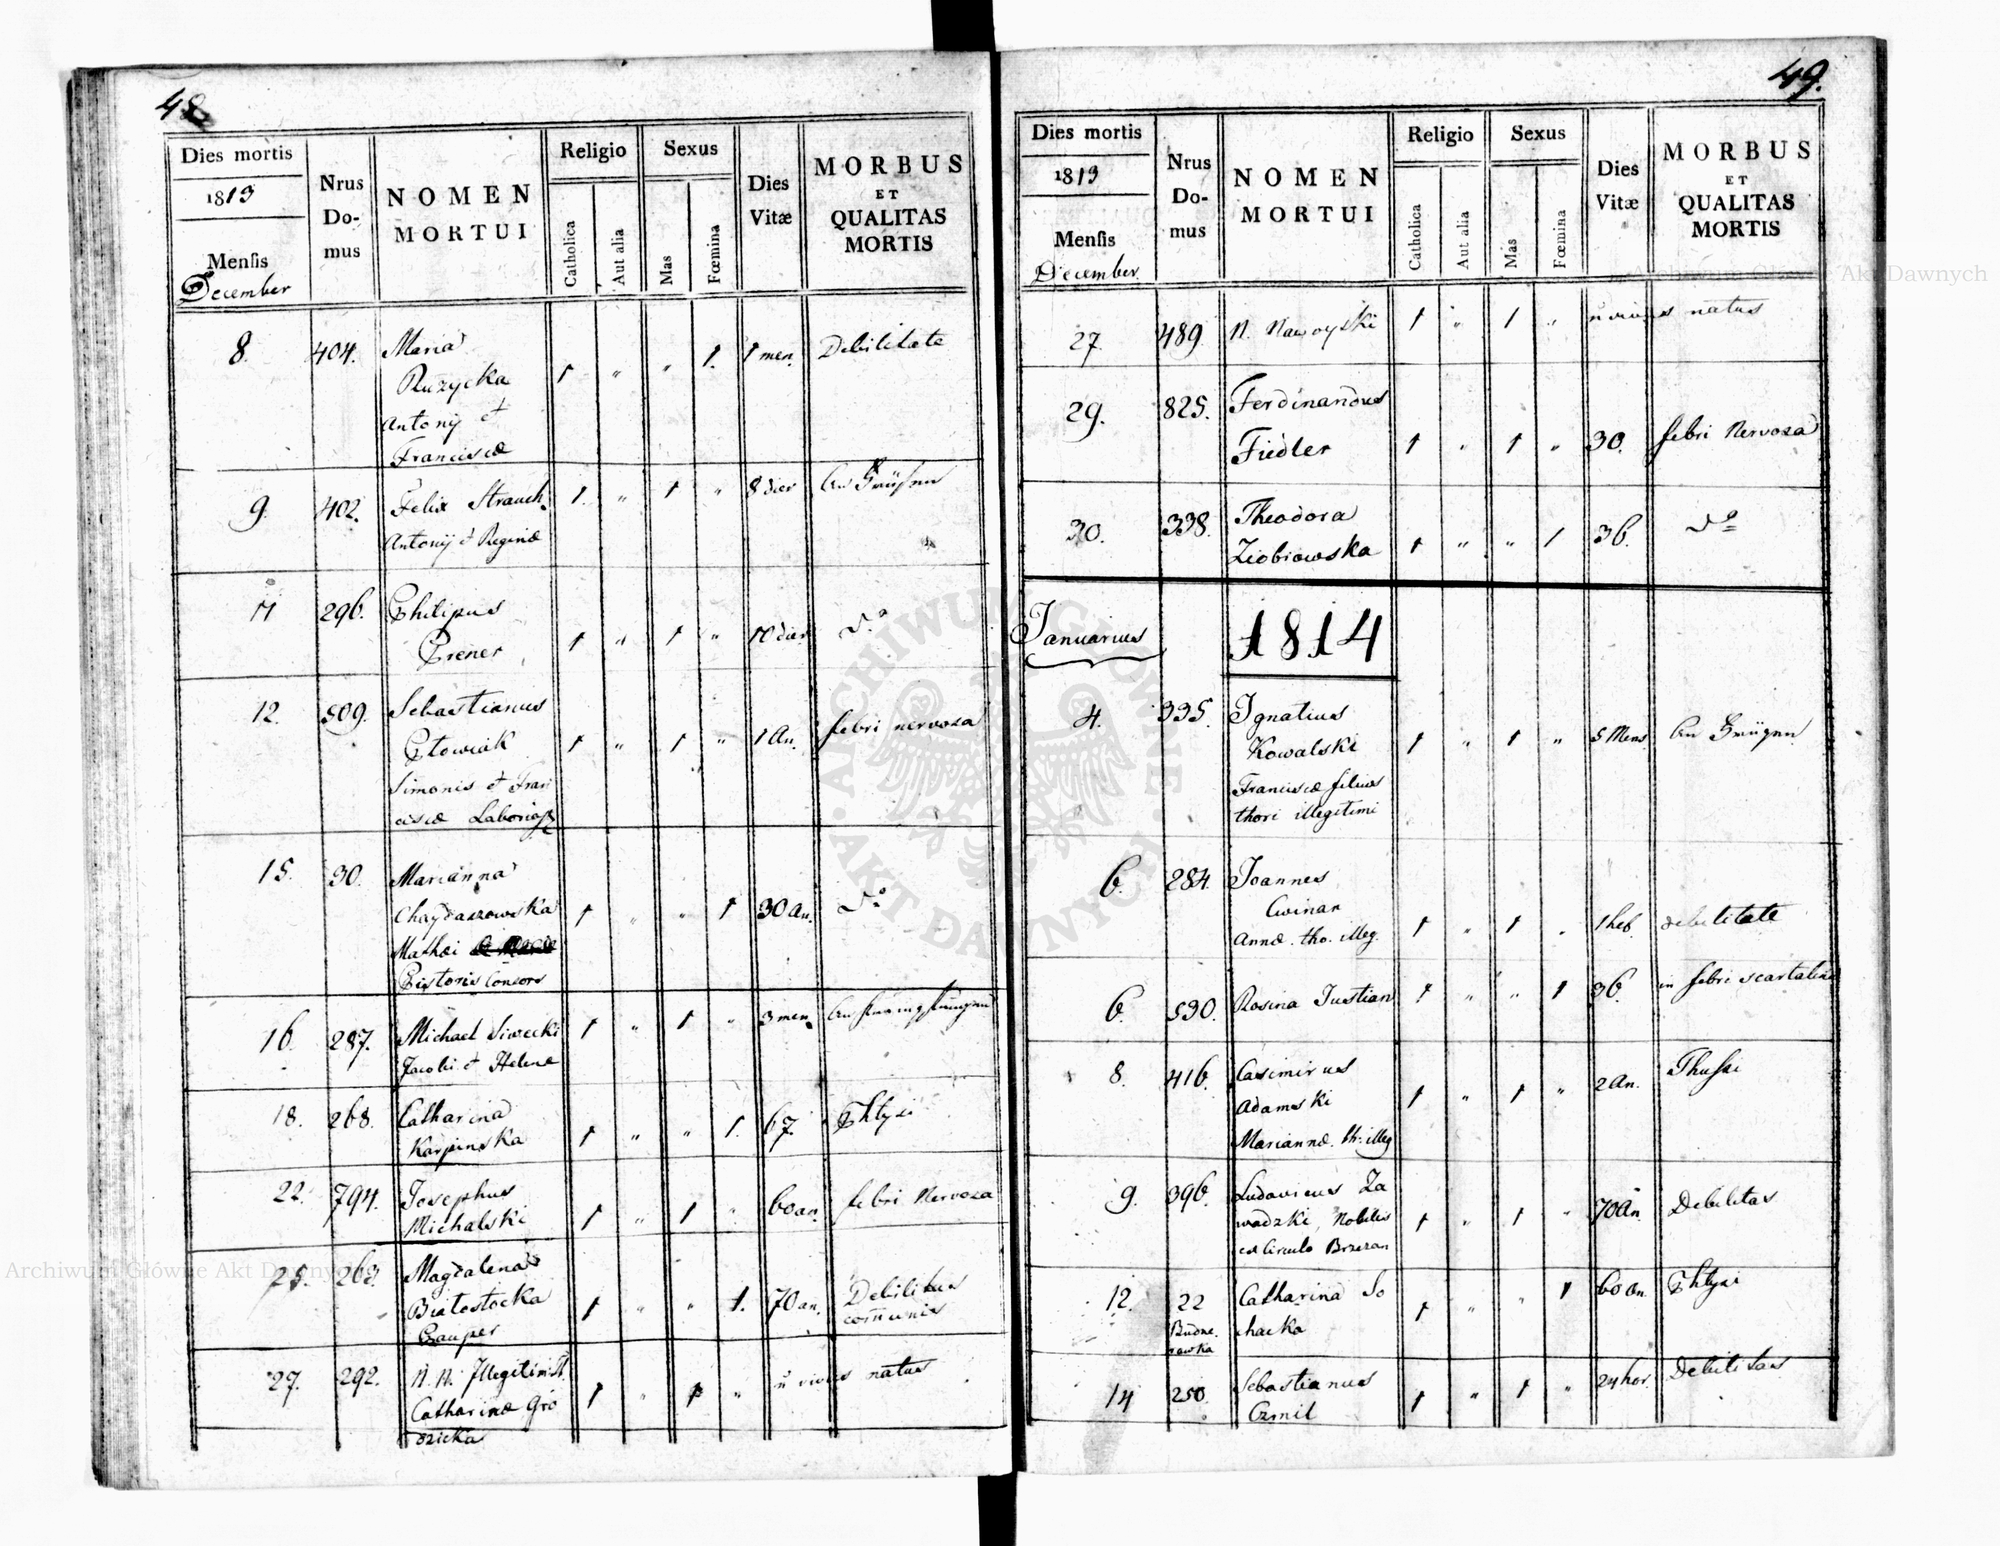 48
Dies mortis
1813
Mensis
December
Nrus
Do-
mus
NOMEN
MORTUI
Religio
Catholica
Aut alia
Sexus
Mas
Fœmina
Dies
Vitæ
MORBUS
ET
QUALITAS
MORTIS
8. 404. Maria 1 " " 1. 1 men. Debilitate
Ruzycka
Antonij et
Franciscæ
9. 402. Felix Strauch. 1. " 1 " 8 dier
Antonij et Reginæ
11 296. Philipus
Prener 1 " 1 " 10 dier dº
12. 509. Sebastianus
Ptowiak 1 " 1 " 1 An. febri nervosa
Simonis et Fran
ciscæ
15. 30. Marianna
Chaydaszowska 1 " " 1 30 an. dº
Mathæi
Pistoris Consors
16. 287. Michael Siwecki 1 " 1 " 3 men.
Jacobi et Helenæ
18. 268. Catharina
Karpinska 1 " " 1. 67. Phtysi
22. 794. Josephus
Michalski 1 " 1 " 60 an. febri Nervosa
25. 263. Magdalena
Białostocka 1 " " 1. 70 an. Debilitas
Pauper comunis
27. 292. N. N. Illegitim.
Catharinæ Gro 1 " 1 " natus
dzicka
49.
Dies mortis
1813
Mensis
December.
Nrus
Do-
mus
NOMEN
MORTUI
Religio
Catholica
Aut alia
Sexus
Mas
Fœmina
Dies
Vitæ
MORBUS
ET
QUALITAS
MORTIS
27. 489. N. Nawoyski 1 " 1 " natus
29. 825. Ferdinandus
Fiedler 1 " 1 " 30. febri Nervosa
30. 338. Theodora
Ziobrowska 1 " " 1 36. dº
Januarius 1814
4. 335. Ignatius
Kowalski 1 " 1 " 5 Mens.
Franciscæ filius
thori illegitimi
6. 284. Joannes
Cwinar
Annæ. tho. illeg. 1 " 1 " 1 heb. debilitate
6. 530. Rosina Justian 1 " " 1 36. in febri scartalina
8. 416. Casimirus
Adamski 1 " 1 " 2 an.
Mariannæ. th: illeg
9. 396. Ludovicus Za
wadzki, Nobilis 1 " 1 " 70 an. Debilitas
ex Circulo Brzezan
12. 22 Catharina So 1 " " 1 60 an. Phtysi
chacka
14 250. Sebastianus 1 " 1 " 24 hor. Debilitas
Czmil
Archiwum Główne Akt Dawnych
Archiwum Główne Akt Dawnych
ARCHIWUM GŁÓWNE
AKT DAWNYCH